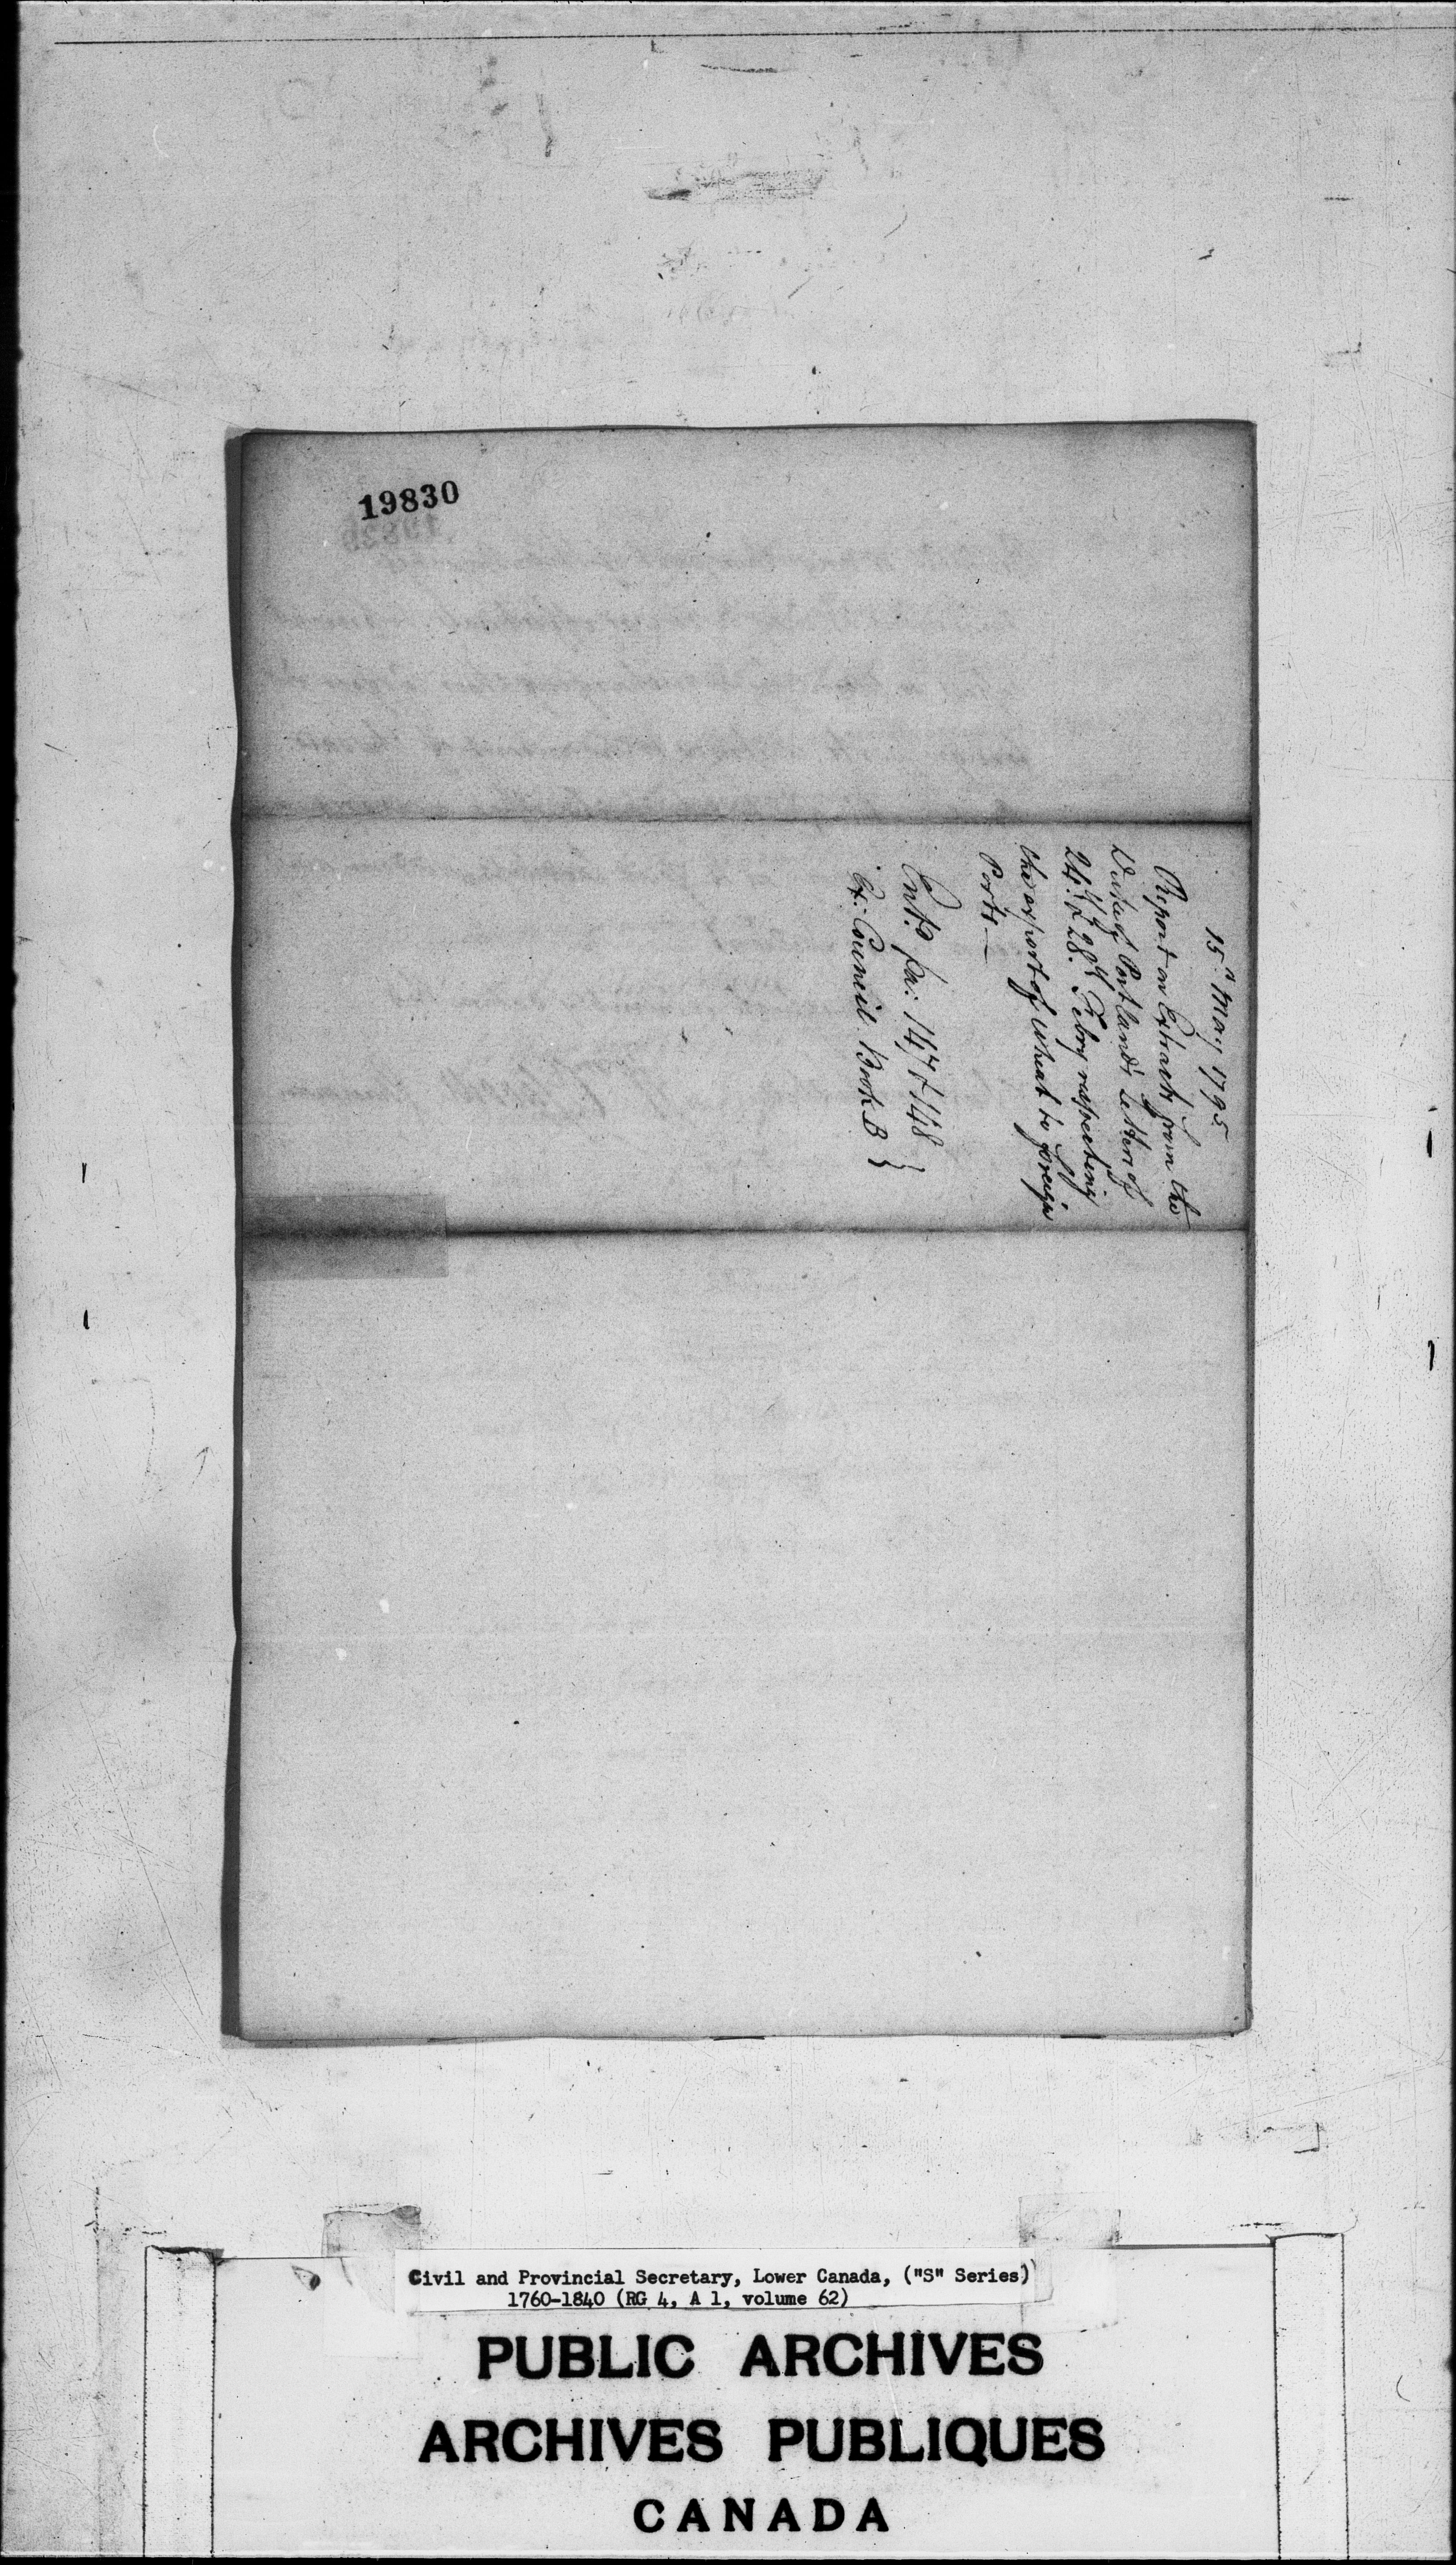 19830
15th May 1795
Report on Extracts from the
Duke of Portland's Letters of
24th & 28th Febry respecting
the export of Wheat to foreign
Ports —
Ent.d pa: 147 & 148 }
Ex: Council Book B }
Civil and Provincial Secretary, Lower Canada, ("S" Series)
1760-1840 (RG 4, A 1, volume 62)
PUBLIC ARCHIVES
ARCHIVES PUBLIQUES
CANADA